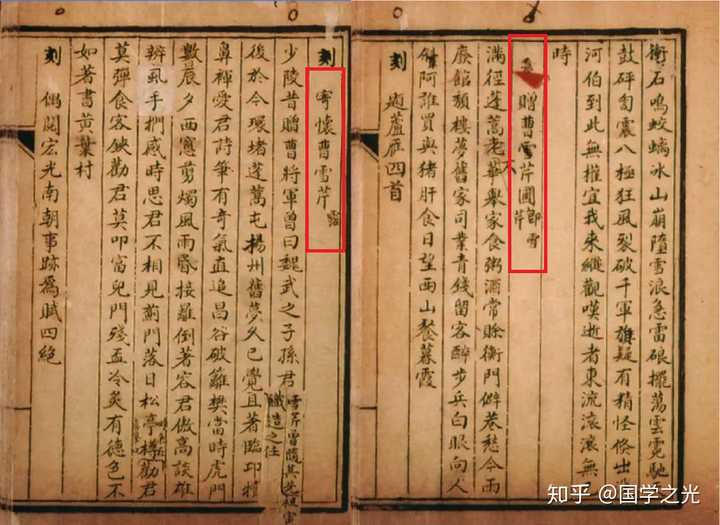 衝石鳴蛟螭冰山崩墮雪浪急雷硠擺萬雲霓馳
鼓砰訇震八極狂風裂破千軍旗疑有精怪倏出
河伯到此無權宜我來縱觀嘆逝者東流滾滾無
時
贈曹雪芹圃 即雪芹
滿徑蓬蒿老不華舉家食粥酒常賒衡門僻巷愁今雨
廢館頹樓夢舊家司業青錢留客醉步兵白眼向人
斜阿誰買與猪肝食日望西山餐暮霞
刻 題蘆雁四首
刻 寄懷曹雪芹 霑
少陵昔贈曹將軍曾曰魏武之子孫君
雪芹曾隨其先祖寅
織造之任
後於今環堵蓬蒿屯揚州舊夢久已覺且著臨邛犢
鼻褌愛君詩筆有奇氣直追昌谷破籬樊當時虎門
數晨夕西窻剪燭風雨昏接䍦倒著容君傲高談雄
辨虱手捫感時思君不相見薊門落日松亭樽勸君
莫彈食客鋏勸君莫叩富兒門殘盃冷炙有德色不
如著書黃葉村
刻 偶閱宏光南朝事跡為賦四絕
知乎 @国学之光